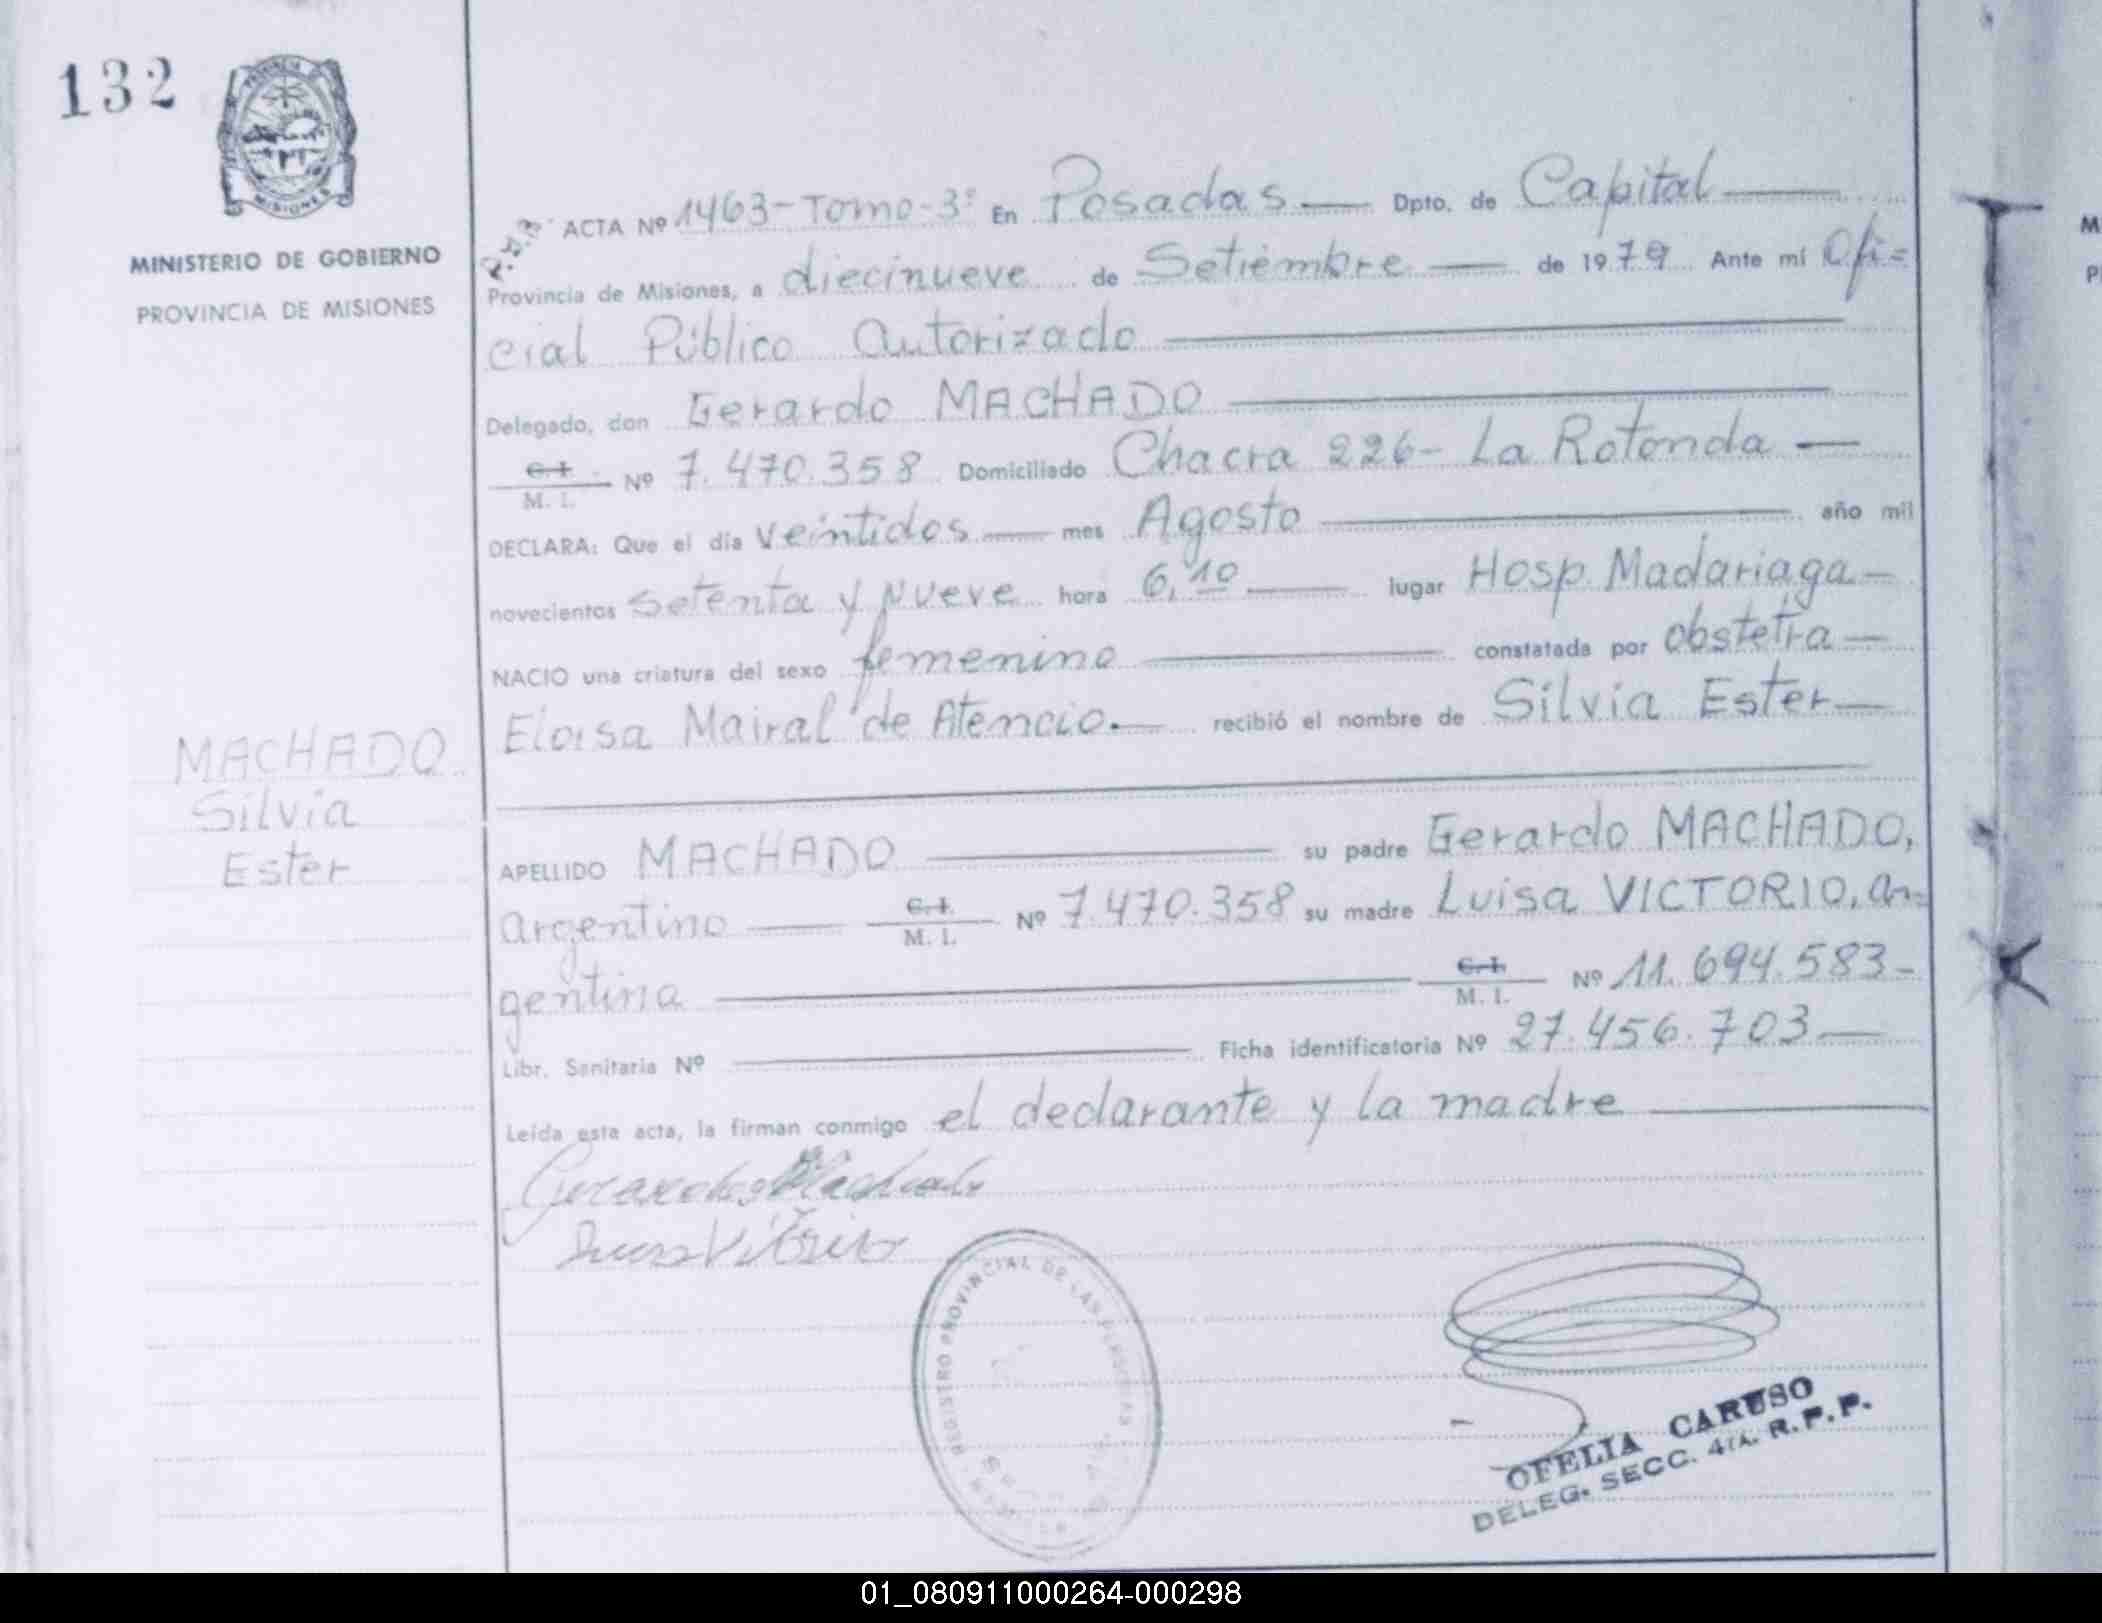 132
PROVINCIA DE
MISIONES
MINISTERIO DE GOBIERNO
PROVINCIA DE MISIONES
ACTA Nº 1463-Tomo-3º En Posadas — Dpto. de Capital —
Provincia de Misiones, a diecinueve de Setiembre — de 1979 Ante mí Ofi=
cial Público Autorizado —
Delegado, don Gerardo MACHADO —
C. I.
M. I. Nº 7.470.358 Domiciliado Chacra 226- La Rotonda —
DECLARA: Que el día veintidos — mes Agosto — año mil
novecientos setenta y nueve hora 6,10 — lugar Hosp. Madariaga —
NACIO una criatura del sexo femenino — constatada por obstetra —
Eloisa Mairal de Atencio. — recibió el nombre de Silvia Ester —
MACHADO
Silvia
Ester
APELLIDO MACHADO — su padre Gerardo MACHADO,
argentino — C. I.
M. I. Nº 7.470.358 su madre Luisa VICTORIO, ar=
gentina — C. I.
M. I. Nº 11.694.583-
Libr. Sanitaria Nº — Ficha identificatoria Nº 27.456.703 —
Leída esta acta, la firman conmigo el declarante y la madre —
Gerardo Machado
REGISTRO PROVINCIAL DE LAS PERSONAS
OFELIA CARUSO
DELEG. SECC. 4ta. R. P. P.
M
P
01_080911000264-000298